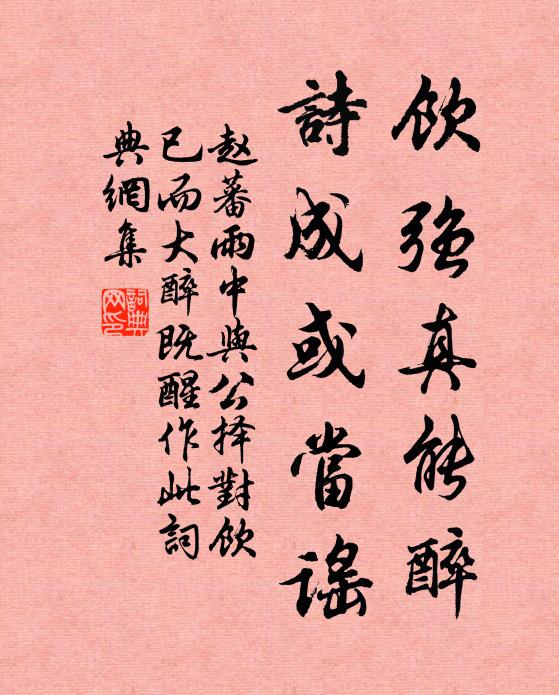 飲強真能醉
詩成或當謠
赵蕃雨中與公择對飲
已而大醉既醒作此詞
典網集
詞典
网印